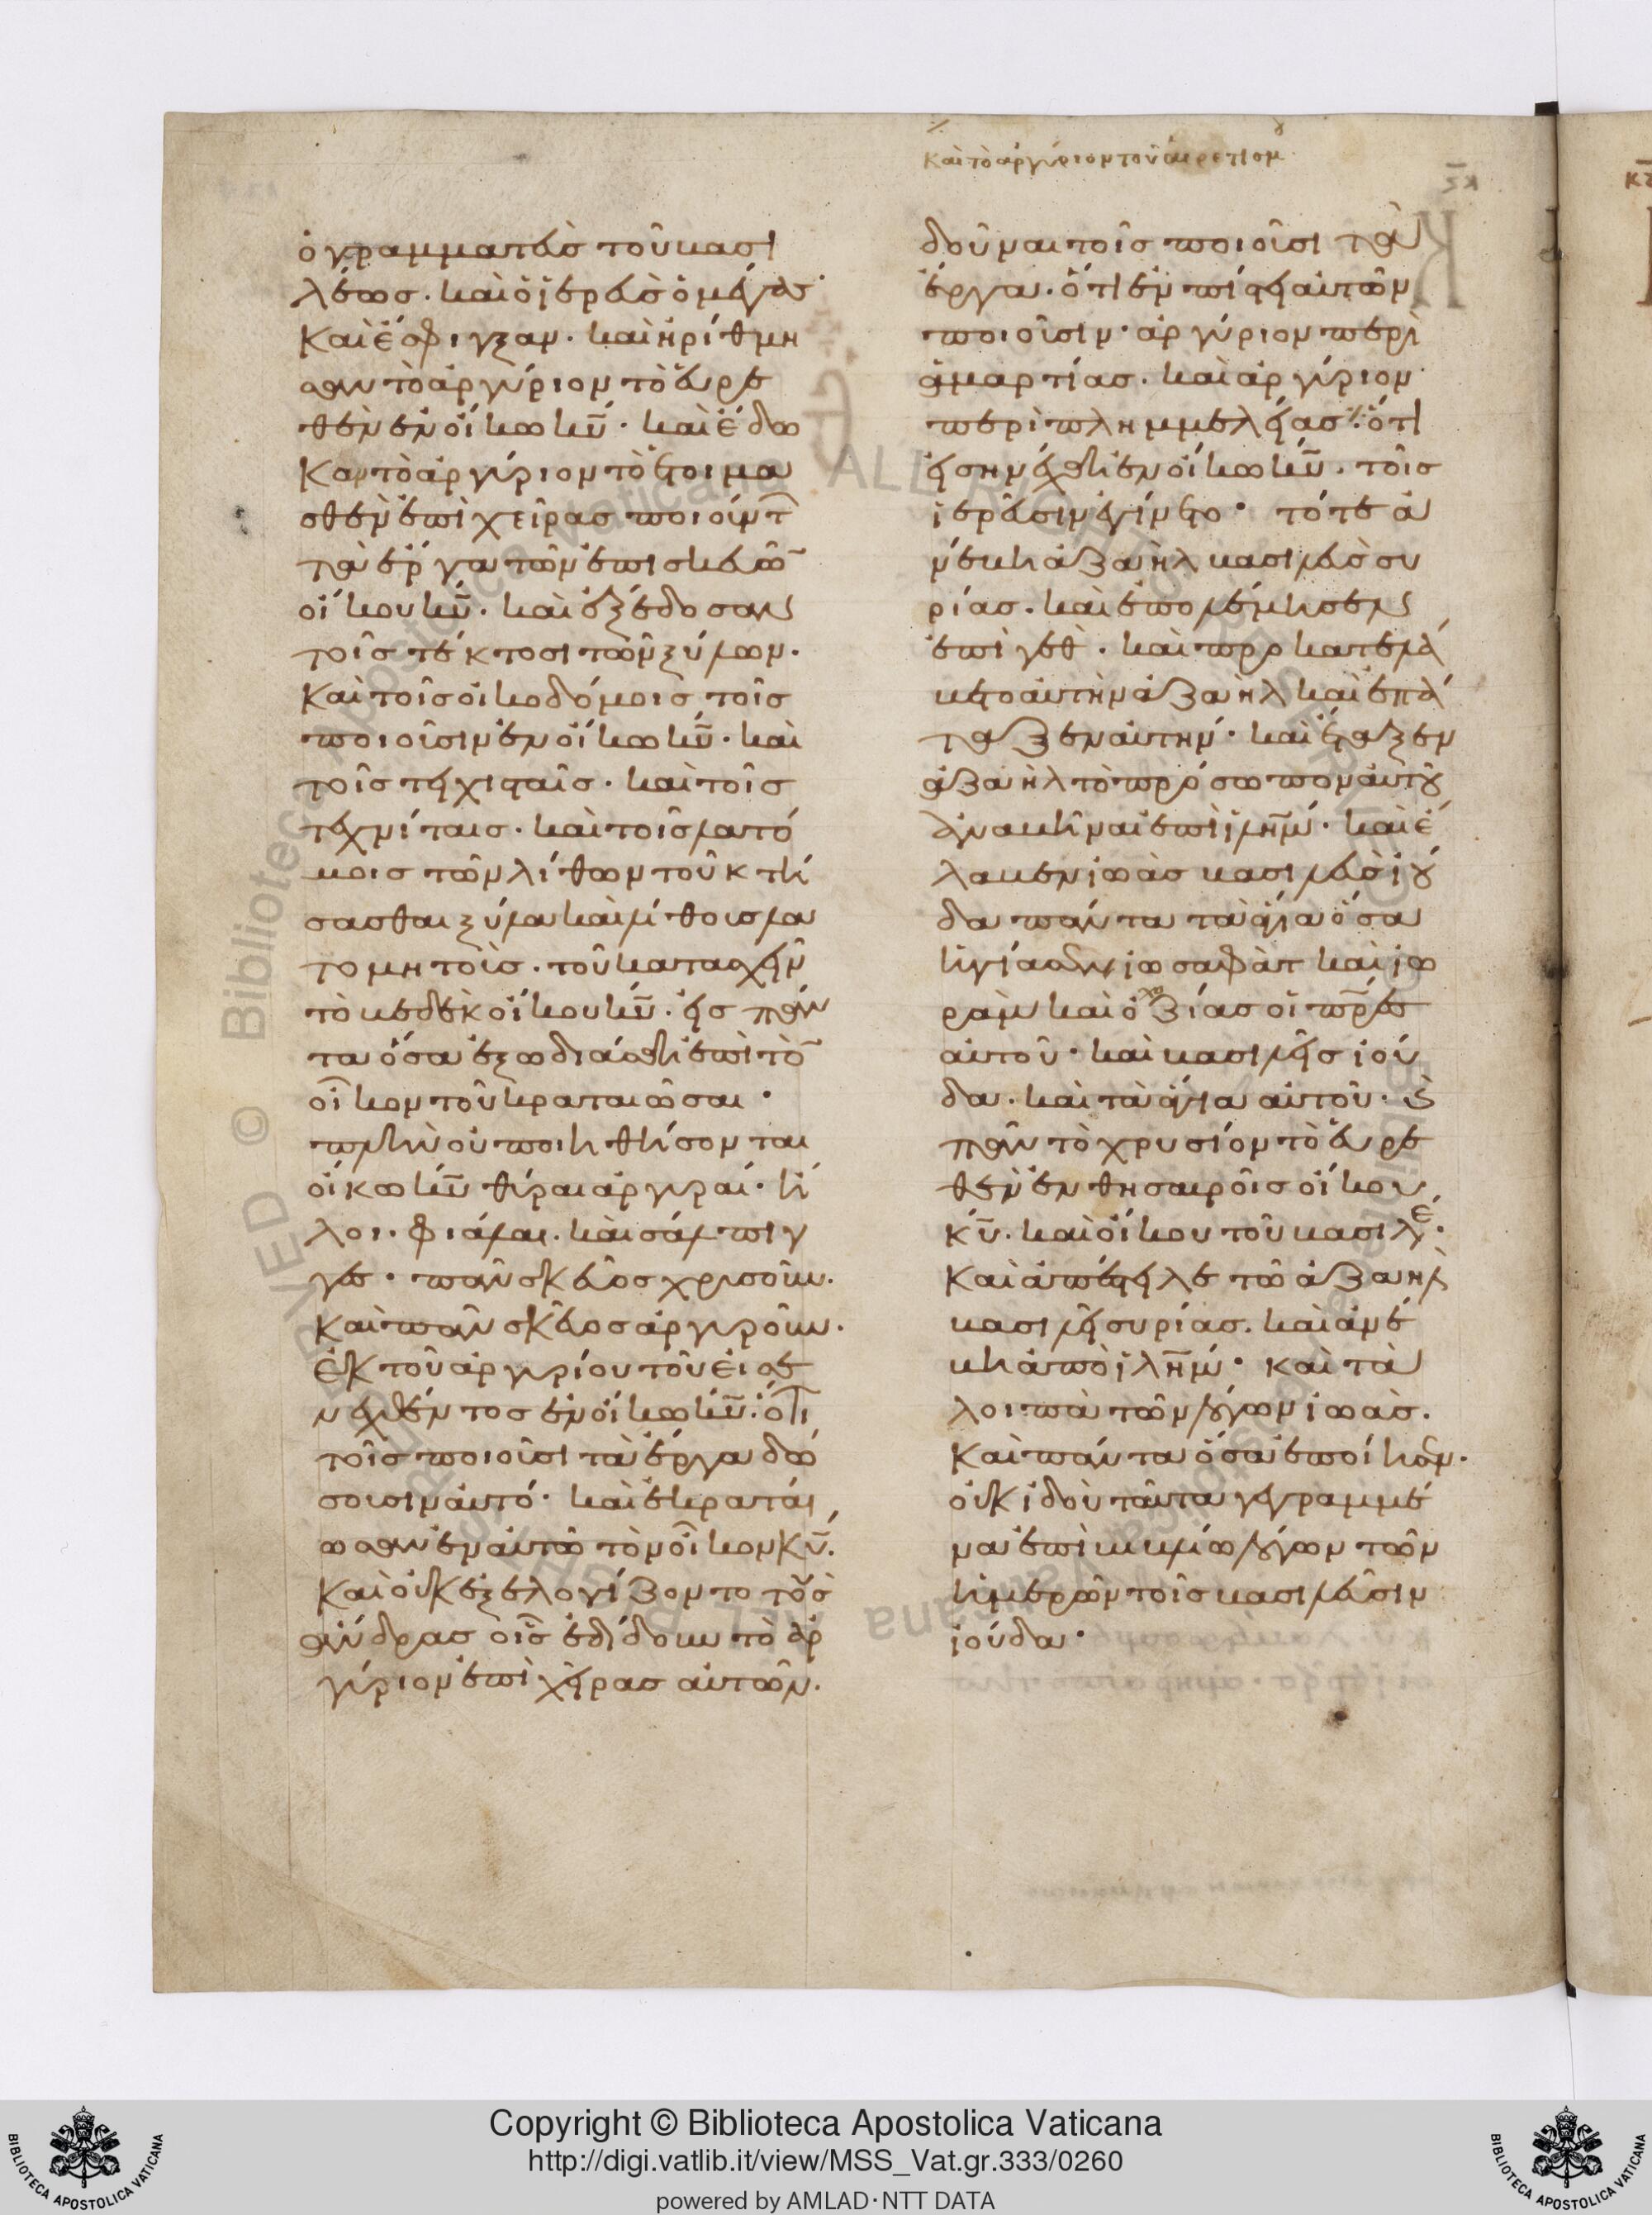 καὶ τὸ ἀργύριον τοῦ αἱρετιον
κϛ
ὁ γραμματεὺς τοῦ βασι
λέως. καὶ ὁ ἱερεὺς ὁ μέγας·
Καὶ ἔσφιγξαν. καὶ ἠρίθμη
σαν τὸ ἀργύριον τὸ εὑρε
θὲν ἐν οἴκω κ̅υ̅. καὶ ἔδω
καν τὸ ἀργύριον τὸ ἑτοιμα
σθὲν ἐπὶ χεῖρας ποιούντ
τὰ ἔργα τῶν ἐπισκεῶ̅
οἴκου κ̅υ̅. καὶ ἐξέδοσαν
τοῖς τέκτοσι τῶν ξύλων.
Καὶ τοῖς οἰκοδόμοις τοῖς
ποιοῦσιν ἐν οἴκω κ̅υ̅. καὶ
τοῖς τειχισταῖς. καὶ τοῖς
τεχνίταις. καὶ τοῖς λατό
μοις τῶν λίθων τοῦ κτή
σασθαι ξύλα καὶ λίθους λα
τομητοὺς. τοῦ κατασχεῖν
τὸ βεδὲκ οἴκου κ̅υ̅. εἰς πάν
τα ὅσα ἐξωδιάσθη ἐπὶ τὸ̅
οἶκον τοῦ κραταιῶσαι·
πλὴν οὐ ποιηθήσονται
οἴκω κ̅υ̅ θύραι ἀργυραί. ἧ
λοι. φιάλαι. καὶ σάλπιγ
γες. πᾶν σκεῦος χρυσοῦν.
Καὶ πᾶν σκεῦος ἀργυροῦν.
ἐκ τοῦ ἀργυρίου τοῦ εἰσε
νεχθέντος ἐν οἴκω κ̅υ̅. ὅτι
τοῖς ποιοῦσι τὰ ἔργα δώ
σουσιν αὐτό. καὶ ἐκραταί
ωσαν ἐν αὐτῶ τὸν οἶκον κ̅υ̅.
Καὶ οὐκ ἐξελογίζοντο τοὺς
ἄνδρας οἷς ἐδίδουν τὸ ἀρ
γύριον ἐπὶ χεῖρας αὐτῶν.
δοῦναι τοῖς ποιοῦσι τὰ
ἔργα. ὅτι ἐν πίστει αὐτῶν
ποιοῦσιν. ἀργύριον περὶ
ἁμαρτίας. καὶ ἀργύριον
περὶ πλημμελείας ⁒ ὅτι
εἰσηνέχθη ἐν οἴκω κ̅υ̅. τοῖς
ἱερεῦσιν ἐγίνετο· τότε ἀ
νέβη ἀζαὴλ βασιλεὺς συ
ρίας. καὶ ἐπολέμησεν
ἐπὶ γέθ. καὶ προκατελά
βετο αὐτὴν ἀζαὴλ καὶ ἐπά
ταξεν αὐτήν. καὶ ἔταξεν
ἀζαὴλ τὸ πρόσωπον αὐτοῦ
ἀναβῆναι ἐπὶ ἰλ̅η̅μ̅. καὶ ἔ
λαβεν ἰωὰς βασιλεὺς ἰού
δα πάντα τὰ ἅγια ὅσα
ἡγίασαν ἰωσαφὰτ καὶ ἰω
ρὰμ καὶ ὀχοζίας οἱ π̅ρ̅ες
αὐτοῦ. καὶ βασιλεῖς ἰού
δα. καὶ τὰ ἅγια αὐτοῦ. ϗ
πᾶν τὸ χρυσίον τὸ εὑρε
θὲν ἐν θησαυροῖς οἴκου
κ̅υ̅. καὶ οἴκου τοῦ βασιλέ.
Καὶ ἀπέστειλε τῶ ἀζαὴλ
βασιλεῖ συρίας. καὶ ἀνέ
βη ἀπὸ ἰλ̅η̅μ̅. καὶ τὰ
λοιπὰ τῶν λόγων ἰωὰς.
Καὶ πάντα ὅσα ἐποίησεν.
οὐκ ἰδοὺ ταῦτα γεγραμμέ
να ἐπὶ βιβλίω λόγων τῶν
ἡμερῶν τοῖς βασιλεῦσιν
ἰούδα·
Copyright © Biblioteca Apostolica Vaticana
http://digi.vatlib.it/view/MSS_Vat.gr.333/0260
powered by AMLAD·NTT DATA